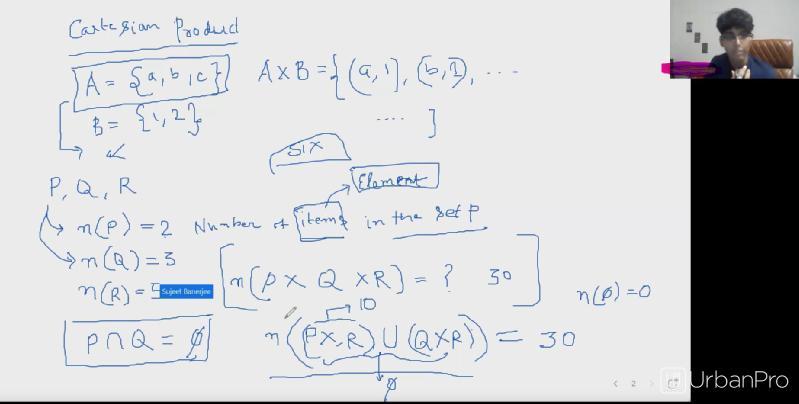 Cartesian Product
A = {a, b, c}
A x B = {(a, 1), (b, 1), ...
B = {1, 2}
.... }
SIX
Element
P, Q, R
n(P) = 2 Number of items in the set P
n(Q) = 3
n(P x Q x R) = ? 30
n(R) = 5
Sujeet Banerjee
n(ϕ) = 0
10
P ∩ Q = ϕ
n((P x R) ∪ (Q x R)) = 30
ϕ
2
UrbanPro